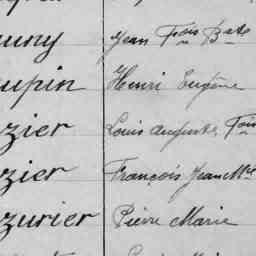 uny Jean Fois Bte
upin Henri Eugène
zier Louis Auguste Fois
zier François Jean Mie
zurier Pierre Marie